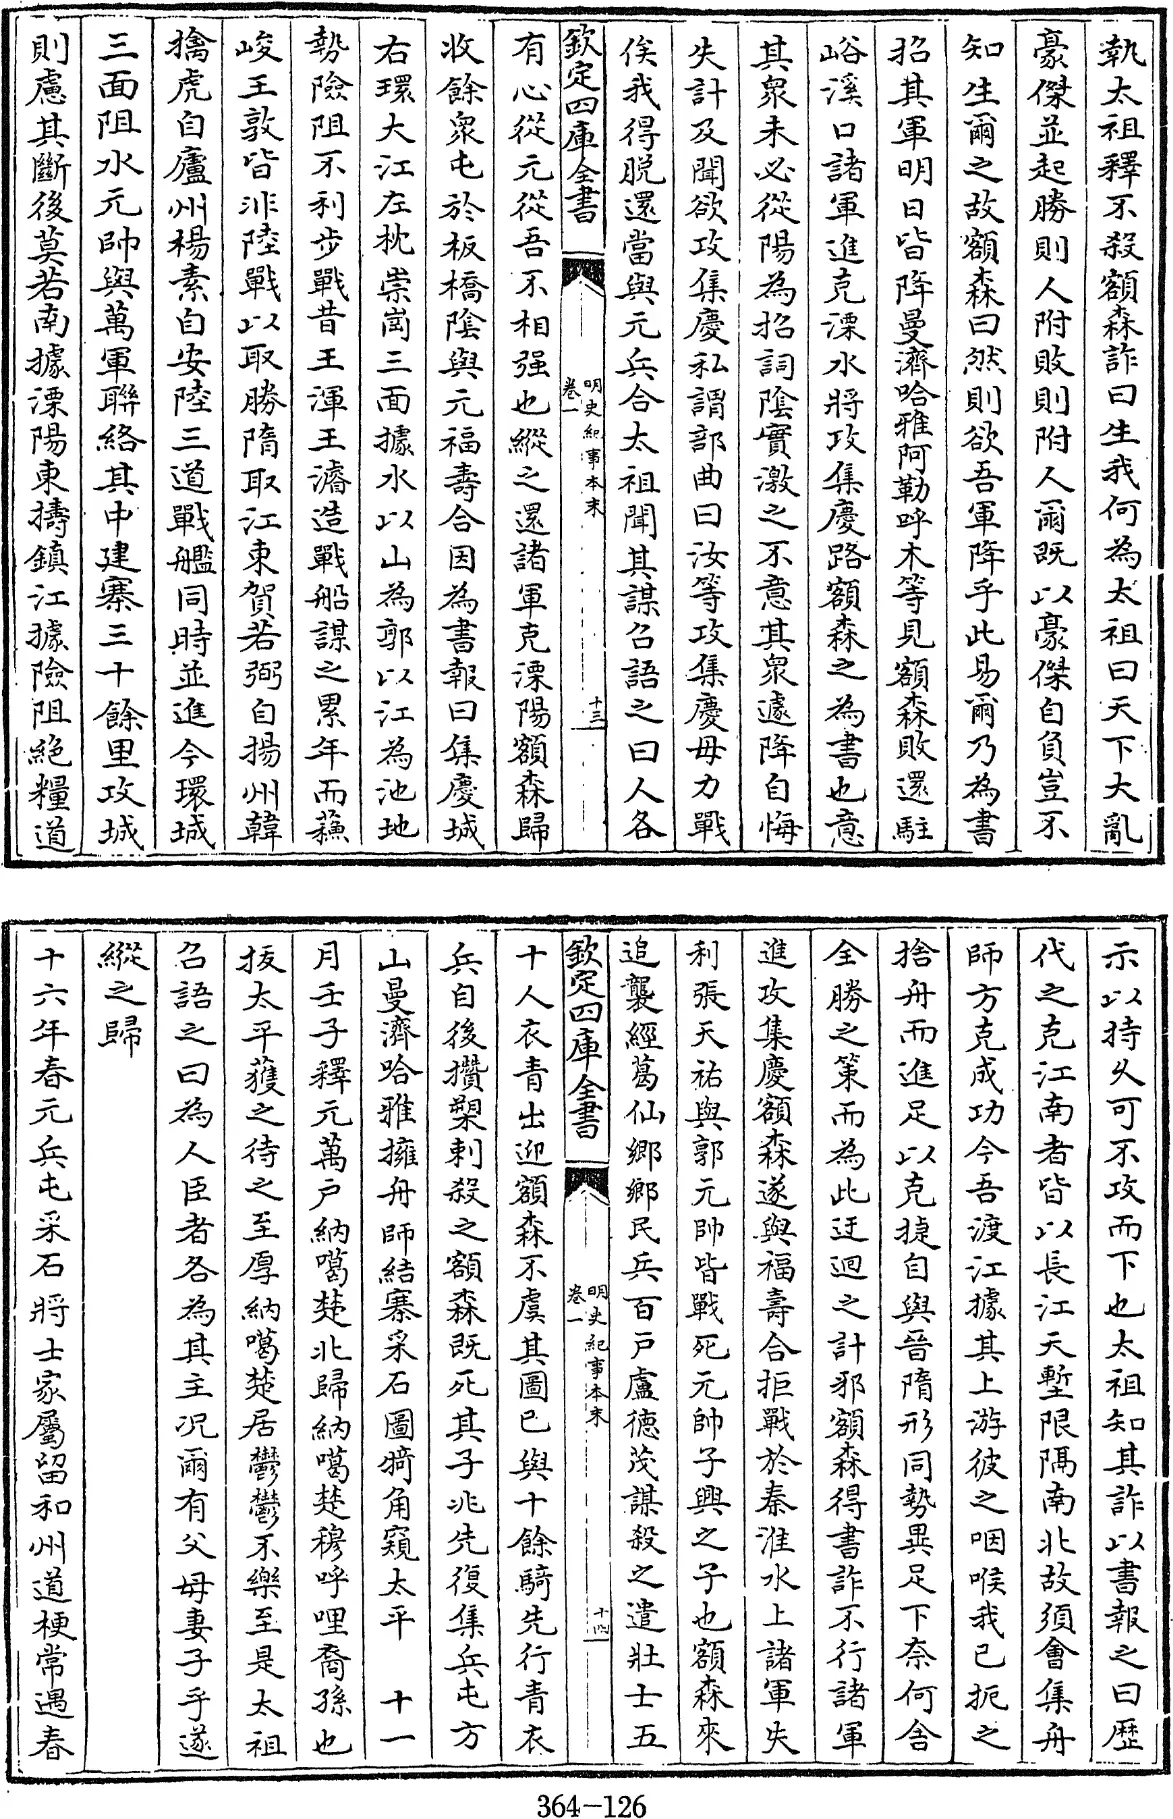 執太祖釋不殺額森詐曰生我何為太祖曰天下大亂
豪傑並起勝則人附敗則附人爾既以豪傑自負豈不
知生爾之故額森曰然則欲吾軍降乎此易爾乃為書
招其軍明日皆降曼濟哈雅阿勒呼木等見額森敗還駐
峪溪口諸軍進克溧水將攻集慶路額森之為書也意
其衆未必從陽為招詞陰實激之不意其衆遽降自悔
失計及聞欲攻集慶私謂部曲曰汝等攻集慶毋力戰
俟我得脱還當與元兵合太祖聞其謀召語之曰人各
欽定四庫全書
明史紀事本末
卷一
十三
有心從元從吾不相强也縱之還諸軍克溧陽額森歸
收餘衆屯於板橋陰與元福壽合因為書報曰集慶城
右環大江左枕崇岡三面據水以山為郭以江為池地
勢險阻不利步戰昔王渾王濬造戰船謀之累年而蘓
峻王敦皆非陸戰以取勝隋取江東賀若弼自揚州韓
擒虎自廬州楊素自安陸三道戰艦同時並進今環城
三面阻水元帥與萬軍聯絡其中建寨三十餘里攻城
則慮其斷後莫若南據溧陽東擣鎮江據險阻絶糧道
示以持久可不攻而下也太祖知其詐以書報之曰歴
代之克江南者皆以長江天塹限隔南北故須會集舟
師方克成功今吾渡江據其上游彼之咽喉我已扼之
捨舟而進足以克捷自與晉隋形同勢異足下奈何舍
全勝之策而為此迂迴之計邪額森得書詐不行諸軍
進攻集慶額森遂與福壽合拒戰於秦淮水上諸軍失
利張天祐與郭元帥皆戰死元帥子興之子也額森來
追襲經葛仙鄉鄉民兵百戸盧德茂謀殺之遣壯士五
欽定四庫全書
明史紀事本末
卷一
十四
十人衣青出迎額森不虞其圖已與十餘騎先行青衣
兵自後攢槊刺殺之額森既死其子兆先復集兵屯方
山曼濟哈雅擁舟師結寨采石圖犄角窺太平 十一
月壬子釋元萬户納噶楚北歸納噶楚穆呼哩裔孫也
拔太平獲之待之至厚納噶楚居鬱鬱不樂至是太祖
召語之曰為人臣者各為其主况爾有父母妻子乎遂
縱之歸
十六年春元兵屯采石將士家屬留和州道梗常遇春
364-126